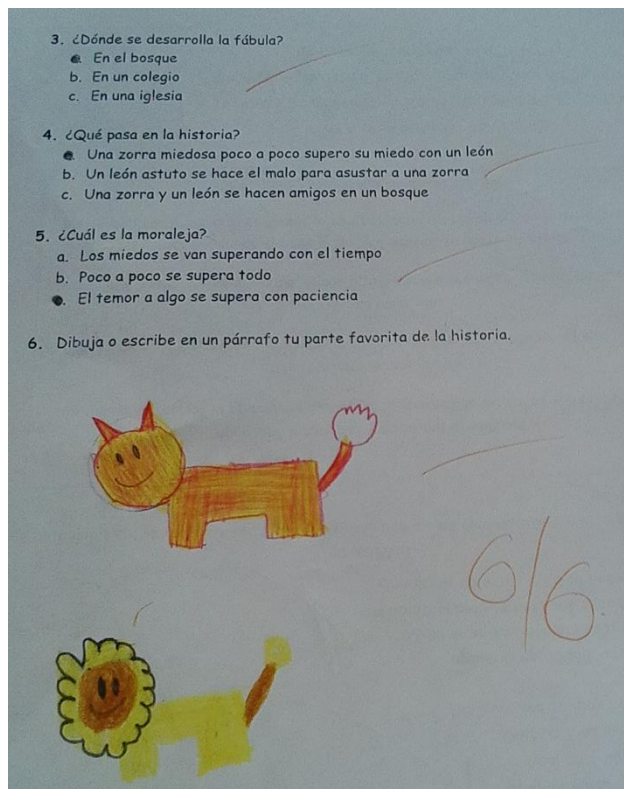 3. ¿Dónde se desarrolla la fábula?
En el bosque
b. En un colegio
c. En una iglesia
4. ¿Qué pasa en la historia?
Una zorra miedosa poco a poco supero su miedo con un león
b. Un león astuto se hace el malo para asustar a una zorra
c. Una zorra y un león se hacen amigos en un bosque
5. ¿Cuál es la moraleja?
a. Los miedos se van superando con el tiempo
b. Poco a poco se supera todo
El temor a algo se supera con paciencia
6. Dibuja o escribe en un párrafo tu parte favorita de la historia.
6/6